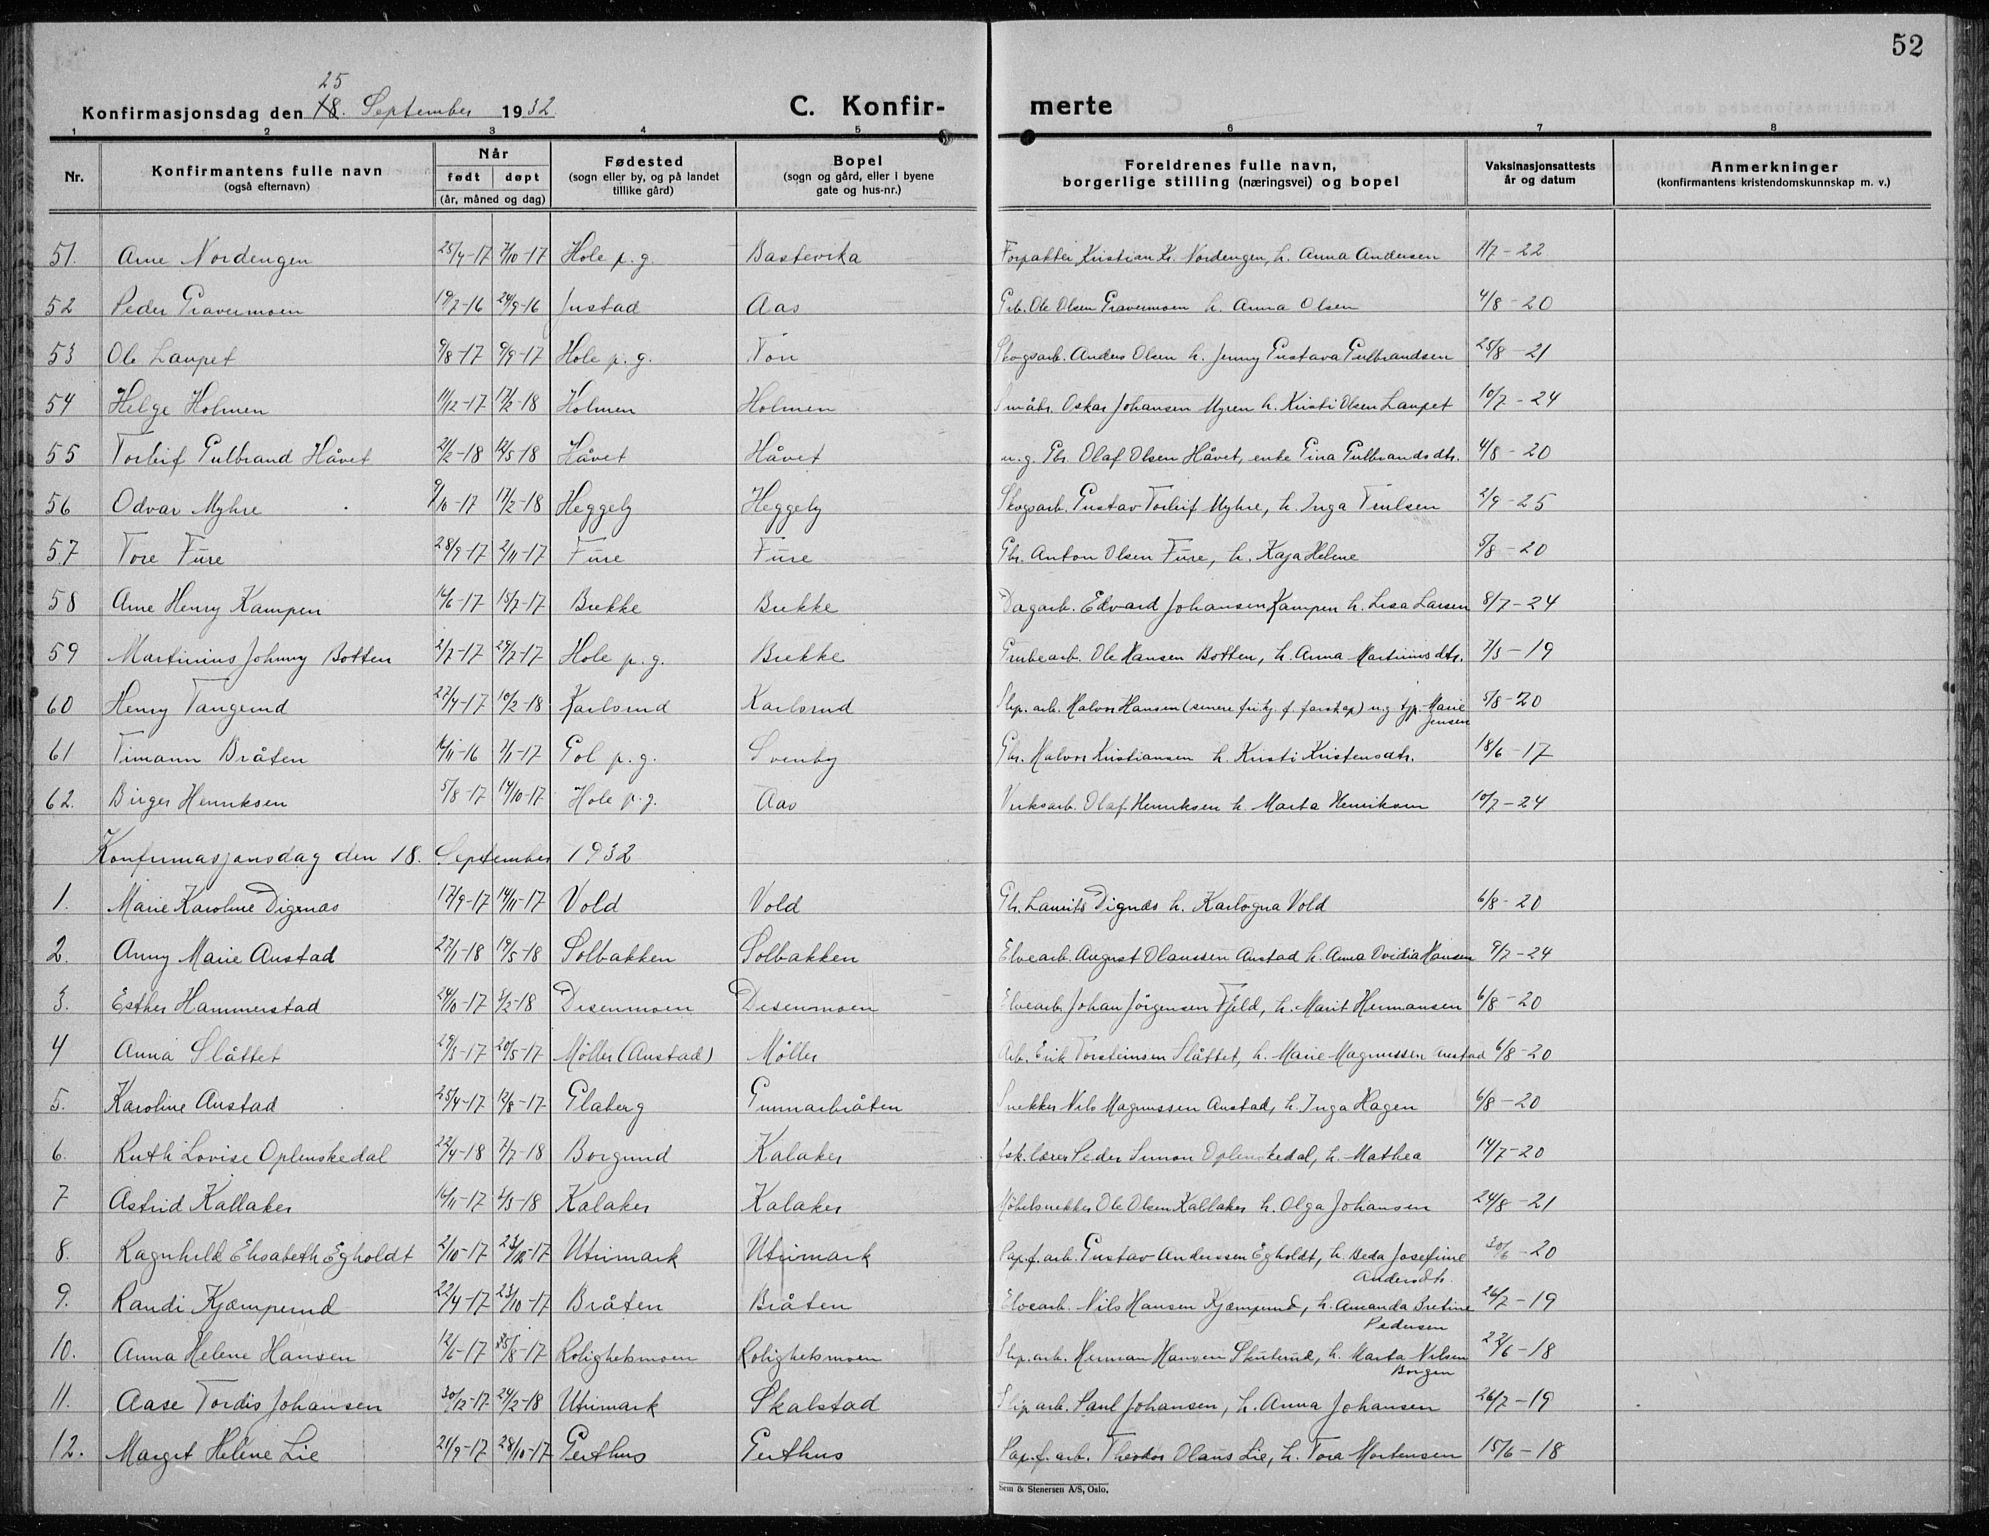 52
25
Konfirmasjonsdag den 18. September 1932 C. Konfir- merte
1 2 3 4 5 6 7 8
Nr. Konfirmantens fulle navn (også efternavn) Når født døpt (år, måned og dag) Fødested (sogn eller by, og på landet tillike gård) Bopel (sogn og gård, eller i byene gate og hus-nr.) Foreldrenes fulle navn, borgerlige stilling (næringsvei) og bopel Vaksinasjonsattests år og datum Anmerkninger (konfirmantens kristendomskunnskap m. v.)
51. Arne Nordengen 25/4-17 7/10-17 Hole p.g. Bastevika Forpakter Kristian Kr. Nordengen, h. Anna Andersen 1/7-22
52 Peder Gravermoen 19/7-16 24/9-16 Justad Aas Grb. Ole Olsen Gravermoen h. Anna Olsen 4/8-20
53 Ole Laupet 9/8-17 9/9-17 Hole p.g. Ton Skogsarb. Anders Olsen h. Jenny Gustava Gulbrandsen 25/8-21
54 Helge Holmen 11/12-17 17/2-18 Holmen Holmen Småbr. Oskar Johansen Myren h. Kristi Olsen Laupet 10/7-24
55 Torleif Gulbrand Håvet 21/2-18 12/5-18 Håvet Håvet u.g. Gbr. Olaf Olsen Håvet, enke Gina Gulbrandsdtr. 4/8-20
56 Odvar Myhre 9/10-17 17/2-18 Heggeby Heggeby Skogsarb. Gustav Torleif Myhre, h. Inga Trulsen 2/9-25
57 Tore Fure 28/9-17 2/11-17 Fure Fure Gbr. Anton Olsen Fure, h. Kaja Helene 5/8-20
58 Arne Henry Kampen 14/6-17 15/7-17 Brekke Brekke Dagarb. Edvard Johansen Kampen h. Lisa Larsen 8/7-24
59 Martinius Johnny Botten 2/7-17 29/7-17 Hole p.g. Brekke Grubearb. Ole Hansen Botten, h. Anna Martinusdtr. 7/5-19
60 Henry Tangerud 27/4-17 10/2-18 Karlsrud Karlsrud Slip. arb. Halvor Hansen (senere frikj. f. farskap) u.g tjp. Marie Jensen 5/8-20
61 Timann Bråten 16/11-16 7/1-17 Gol p.g. Svenby Gbr. Halvor Kristiansen h. Kristi Kristensdtr. 18/6-17
62. Birger Henriksen 5/8-17 14/10-17 Hole p.g. Aas Verksarb. Olaf Henriksen h. Marta Henriksen 10/7-24
Konfirmasjonsdag den 18. September 1932
1. Marie Karoline Digenæs 17/9-17 14/11-17 Vold Vold Gbr. Laurits Dignæs h. Karlogna Vold 6/8-20
2. Anny Marie Austad 27/1-18 19/5-18 Solbakken Solbakken Elvearb. August Olaussen Austad h. Anna Ovidia Hansen 9/7-24
3. Esther Hammerstad 24/10-17 3/2-18 Disenmoen Disenmoen Elvearb. Johan Jörgensen Fjeld, h. Marit Hermansen 6/8-20
4 Anna Slåttet 29/3-17 20/5-17 Møller (Austad) Möller Arb. Erik Torsteinsen Slåttet, h. Marie Magnussen Austad 6/8-20
5. Karoline Austad 25/4-17 12/8-17 Glaberg Gunnarbråten Snekker Nils Magnussen Austad, h. Inga Hagen 6/8-20
6. Ruth Lovise Oplenskedal 22/4-18 7/7-18 Borgund Kalaker fsk. lærer Peder Simon Oplenskedal, h. Mathea 14/7-20
7 Astrid Kallaker 16/11-17 3/3-18 Kalaker Kalaker Møbelsnekker Ole Olsen Kallaker h. Olga Johansen 24/8-21
8. Ragnhild Elisabeth Egholdt 2/10-17 23/12-17 Utrimark Utrimark Pap.f.arb. Gustav Anderssen Egholdt, h. Beda Josefine Andersdtr. 30/6-20
9. Randi Kjæmperud 22/4-17 23/10-17 Bråten Bråten Elvearb. Nils Hansen Kjæmperud, h. Amanda Bretine Pedersen 26/7-19
10. Anna Helene Hansen 12/6-17 25/8-17 Rolighetsmoen Rolighetsmoen Slip.arb. Herman Hansen Skuterud, h. Marta Nilsen Borgen 22/6-18
11. Aase Tordis Johansen 30/12-17 24/2-18 Utrimark Skalstad Sliparb. Paul Johansen, h. Anna Johansen 26/7-19
12. Margit Helene Lie 21/9-17 28/10-17 Gerthus Gerthus Pap.f.arb. Theodor Olaus Lie, h. Tora Mortensen 15/6-18
Sem & Stenersen A/S, Oslo.